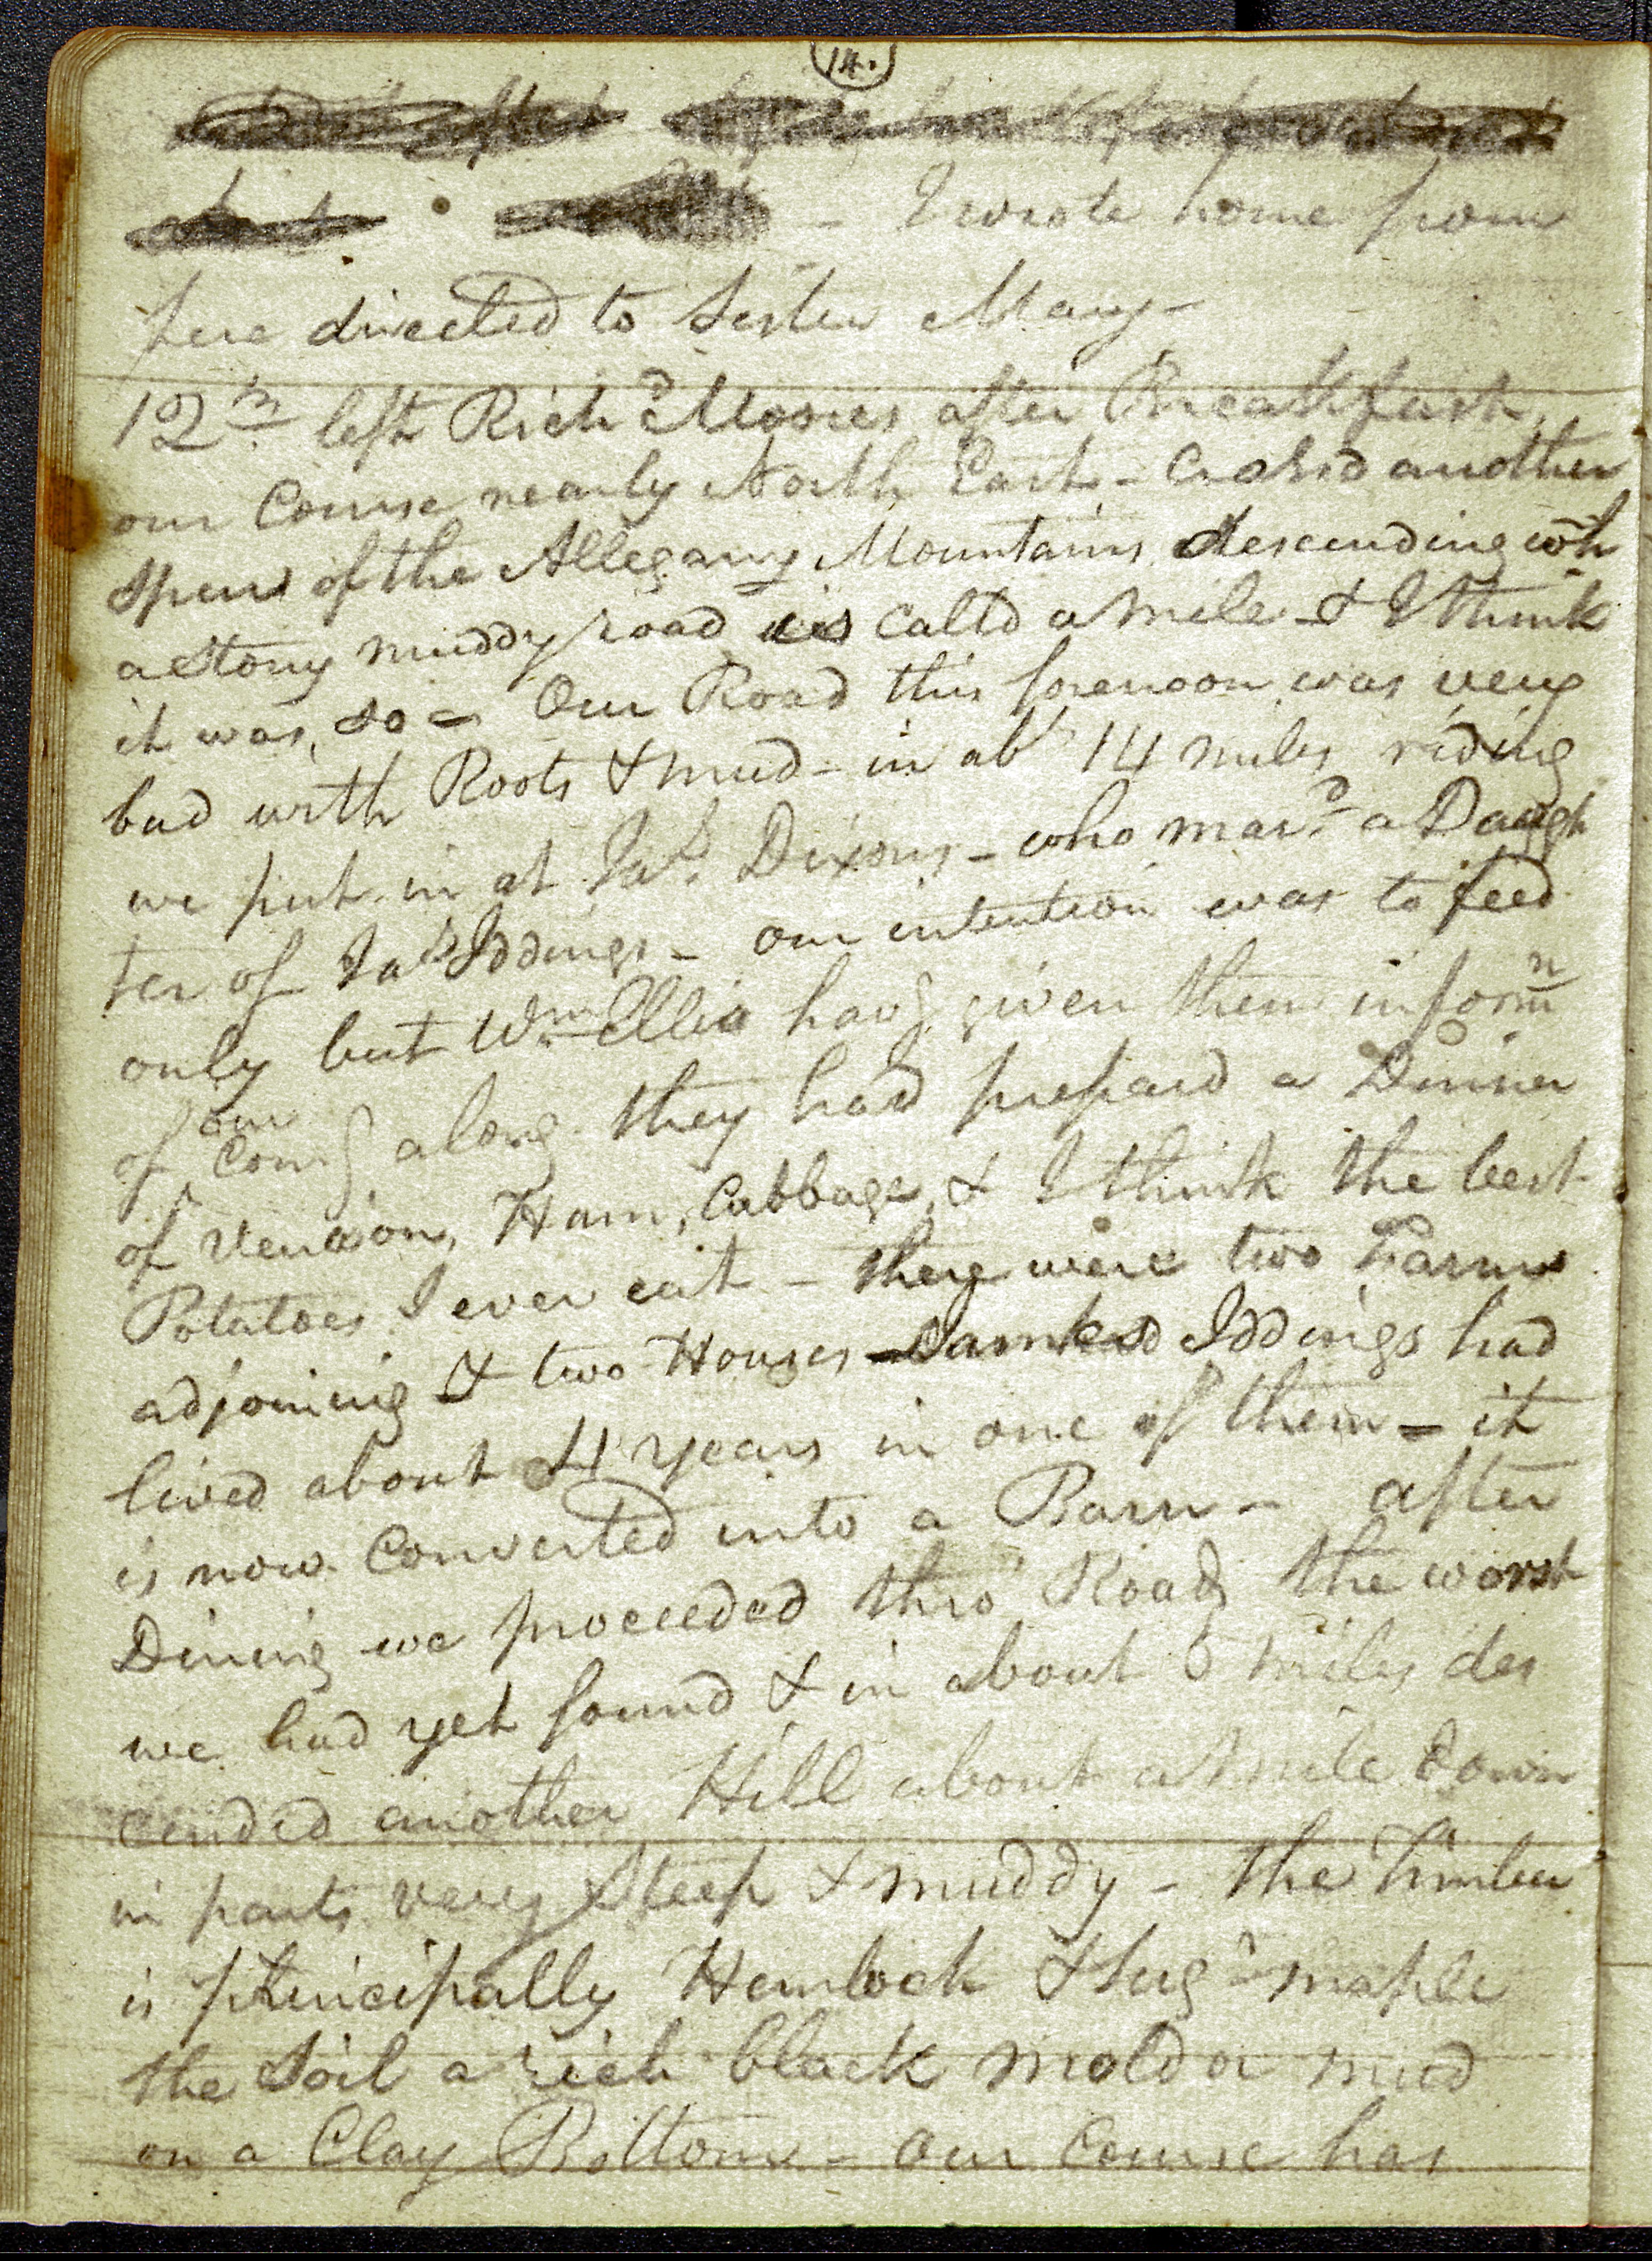 14.
- I wrote home from
here directed to Sister Mary -
12th left Richd Moores after Breakfast,
our Course nearly North East - Crossd another
Spur of the Allegany Mountains descending wh
a Stony muddy road is calld a mile - & I think
it was so - Our Road this forenoon was very
bad with Roots & mud - in abt 14 miles riding
we put in at Jas. Dixons - who mard. a Daugh
ter of Jas Iddings - our intention was to feed
only but Wm Ellis havg given them informn
of our Comg along they had prepard a Dinner
of Venison, Ham, Cabbage, & I think the best
Potatoes I ever eat - there were two Farms
adjoining & two Houses James Iddings had
lived about 4 years in one of them - it
is now Converted into a Barn - after
Dining we proceeded thro' Roads the worst
we had yet found & in about 5 miles des
cended another Hill about a mile down
in parts very Steep & muddy - the Timber
is principally Hemlock & Sugr maple
the Soil a rich black mold or mud
on a Clay Bottom - our Course has